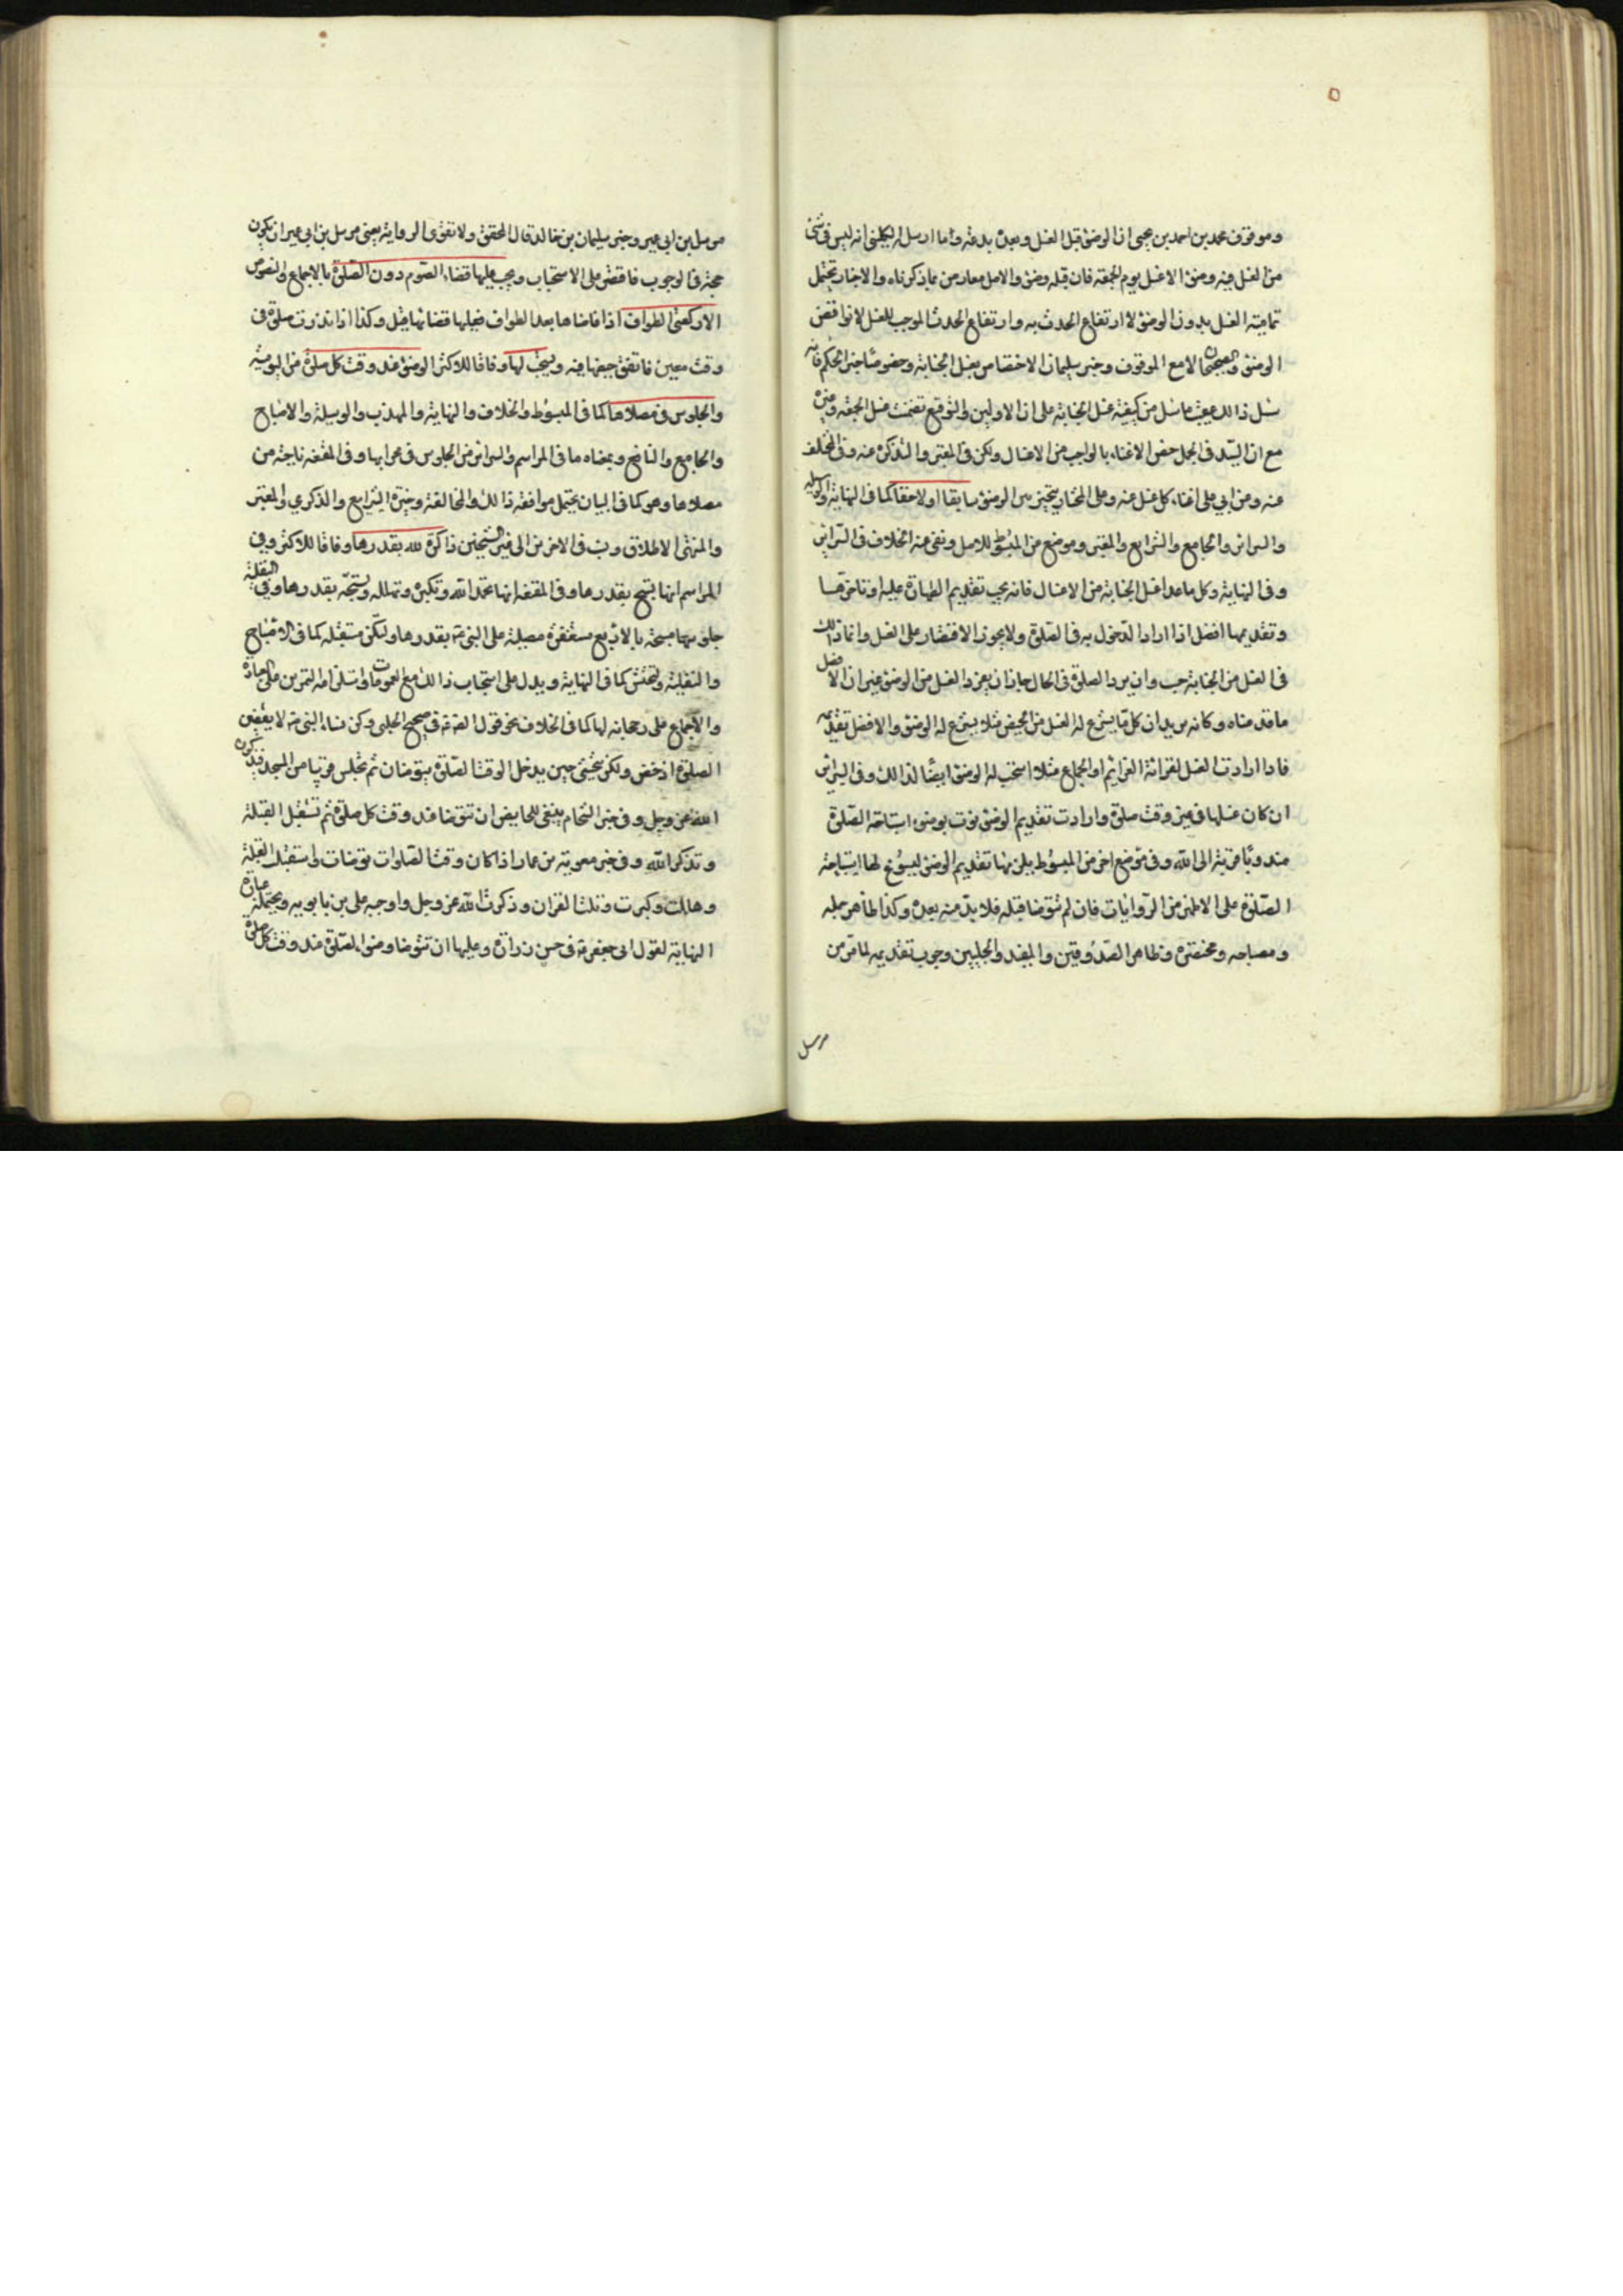 وموقوف محمد بن احمد بن يحيى ان الوضوء قبل الغسل وبعده بدعة واما ارسال الكليني انه ليس في شئ
من الغسل فيه وضوء الا غسل يوم الجمعة فان قبله وضوء والاصل معارض بما ذكرناه والاخبار تحتمل
تمامية الغسل بدون الوضوء لا ارتفاع الحدث به وارتفاع الحدث الموجب للغسل لا نواقض
الوضوء والصحيحان لا مع الموقوف وخبر سليمان الاختصاص بغسل الجنابة وخصوصا خبر الحكم فانه
سئل ذلك عقيب ما سئل من كيفية غسل الجنابة على ان الاولين والتوقيع تضمنت غسل الجمعة وغيره
مع ان السيد في الجمل خص الاغناء بالواجب من الاغسال ولكن في المعتبر والتذكرة عنه وفي المختلف
عنه وعن ابي علي اغناء كل غسل عنه وعلى المختار يتخير بين الوضوء سابقا اولاحقا كما في النهاية والوسيلة
والسرائر والجامع والشرايع والمعتبر وموضع من المبسوط للاصل ونفى عنه الخلاف في السرائر
وفي النهاية وكل ما عدا غسل الجنابة من الاغسال فانه يجب تقديم الطهارة عليه او تاخيرها
وتقديمها افضل اذا اراد الدخول به في الصلوة ولا يجوز الاقتصار على الغسل وانما ذلك
في الغسل من الجنابة حسب وان لم يرد الصلوة في الحال جاز ان يفرد الغسل من الوضوء غير ان الافضل
ما قدمناه وكانه يريد ان كل ما يشرع له الغسل من الحيض مثلا يشرع له الوضوء والافضل تقديمه
فاذا ارادت الغسل لقرائة العزائم او الجماع مثلا استحب له الوضوء ايضا لذلك وفي السرائر
ان كان غسلها في غير وقت صلوة وارادت تقديم الوضوء نوت بوضوء استباحة الصلوة
مندوبا قربة الى الله وفي موضع اخر من المبسوط يلزمها تقديم الوضوء ليسوغ لها استباحة
الصلوة على الاظهر من الروايات فان لم تتوضا قبله فلا بد منه بعده وكذا ظاهر جمله
ومصباحه ومختصره وظاهر الصدوقين والمفيد والحلبيين وجوب تقديمه لما مر من
مرسل
مرسل بن ابي عمير وخبر سليمان بن خالد قال المحقق ولا تقوى الرواية يعني مرسل بن ابي عمير ان تكون
حجة في الوجوب فاقتصر على الاستحباب ويجب عليها قضاء الصوم دون الصلوة بالاجماع والنصوص
الا ركعتي الطواف اذا فاضاها بعد الطواف فعليها قضائها قيل وكذا اذا نذرت صلوة في
وقت معين فاتفق حيضها فيه ويستحب لها وفاقا للاكثر الوضوء عند وقت كل صلوة من اليومية
والجلوس في مصلاها كما في المبسوط والخلاف والنهاية والمهذب والوسيلة والاصباح
والجامع والنافع وبمعناه ما في المراسم والسرائر من الجلوس في محرابها وفي المقنعة ناحية من
مصلاها وهو كما في البيان يحتمل موافقة ذلك والمخالفة وخيرة الشرايع والذكرى والمعتبر
والمنتهى الاطلاق ونسب في الاخيرين الى غير الشيخين ذاكرة لله بقدرها وفاقا للاكثر وفي
المراسم انها تسبح بقدرها وفي المقنعة انها تحمد الله وتكبره وتهلله وتسبحه بقدرها وفي النفلية
جلوسها مسبحة بالاربع مستغفرة مصلية على النبي ص بقدرها ولكن مستقبلة كما في الاصباح
والنفلية وتحتش كما في النهاية ويدل على استحباب ذلك مع العمومات واستلزامه التمرين على العبادة
والاجماع على رجحانه لها كما في الخلاف نحو قول الصادق ع في صحيح الحلبي وكن نساء النبي ص لا يقضين
الصلوة اذا حضن ولكن يتحشين حين يدخل الوقت الصلوة يتوضان ثم تجلس قريبا من المسجد فيذكرن
الله عز وجل وفي خبر الشحام ينبغي للحايض ان تتوضا عند وقت كل صلوة ثم تستقبل القبلة
وتذكر الله وفي خبر معوية بن عمار اذا كان وقت الصلوات توضات واستقبلت القبلة
وهللت وكبرت وتلت القران وذكرت الله عز وجل واوجبه علي بن بابويه ويحتمله عبارة
النهاية لقول ابي جعفر ع في حسن زرارة وعليها ان تتوضا وضوء الصلوة عند وقت كل صلوة